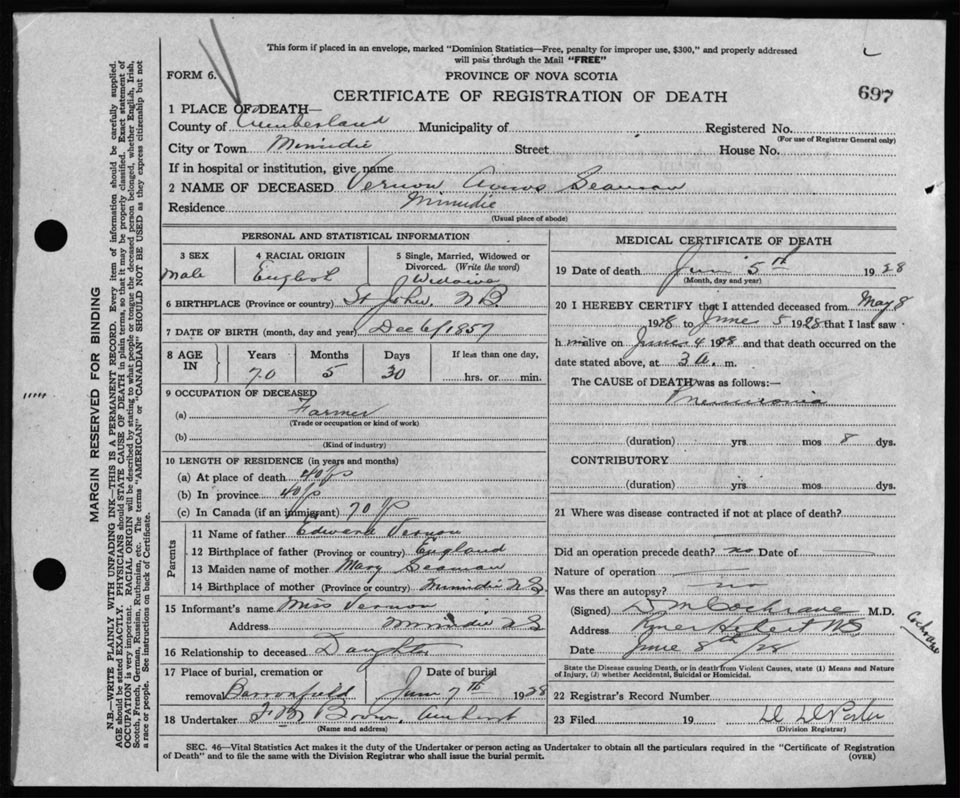 This form if placed in an envelope, marked "Dominion Statistics—Free, penalty for improper use, $300," and properly addressed
will pass through the Mail "FREE"
FORM 6.
PROVINCE OF NOVA SCOTIA
CERTIFICATE OF REGISTRATION OF DEATH
697
1 PLACE OF DEATH—
County of Cumberland Municipality of Registered No.
(For use of Registrar General only)
City or Town Minudie Street House No.
If in hospital or institution, give name
2 NAME OF DECEASED Vernon Amos Seaman
Residence Minudie
(Usual place of abode)
PERSONAL AND STATISTICAL INFORMATION
3 SEX 4 RACIAL ORIGIN 5 Single, Married, Widowed or Divorced. (Write the word)
Male English
6 BIRTHPLACE (Province or country) St John, N.B.
7 DATE OF BIRTH (month, day and year) Dec 6/1857
8 AGE IN Years Months Days If less than one day,
70 5 30 hrs. or min.
9 OCCUPATION OF DECEASED
(a) Farmer
(Trade or occupation or kind of work)
(b)
(Kind of industry)
10 LENGTH OF RESIDENCE (in years and months)
(a) At place of death 40
(b) In province 40
(c) In Canada (if an immigrant) 70
Parents
11 Name of father Edward Vernon
12 Birthplace of father (Province or country) England
13 Maiden name of mother Mary Seaman
14 Birthplace of mother (Province or country) Minudie NS
15 Informant's name Miss Vernon
Address Minudie NS
16 Relationship to deceased Daughter
17 Place of burial, cremation, or Date of burial
removal Barronfield June 7th 1928
18 Undertaker Amherst
(Name and address)
MEDICAL CERTIFICATE OF DEATH
19 Date of death June 5th 1928
(Month, day and year)
20 I HEREBY CERTIFY that I attended deceased from May 8
1928 to June 5 1928 that I last saw
h im alive on June 4 1928 and that death occurred on the
date stated above, at 3 a. m.
The CAUSE of DEATH was as follows:—
Pneumonia
(duration) yrs mos 8 dys.
CONTRIBUTORY
(duration) yrs. mos. dys.
21 Where was disease contracted if not at place of death?
Did an operation precede death? no Date of
Nature of operation
Was there an autopsy? no
(Signed) D M Cochrane M.D.
Address River Hebert N.S.
Cochrane
Date June 8th/28
State the Disease causing Death, or in death from Violent Causes, state (1) Means and Nature
of Injury, (2) whether Accidental, Suicidal or Homicidal.
22 Registrar's Record Number
23 Filed 19 Porter
(Division Registrar)
SEC. 46—Vital Statistics Act makes it the duty of the Undertaker or person acting as Undertaker to obtain all the particulars required in the "Certificate of Registration
of Death" and to file the same with the Division Registrar who shall issue the burial permit.
(OVER)
MARGIN RESERVED FOR BINDING
N.B.—WRITE PLAINLY WITH UNFADING INK—THIS IS A PERMANENT RECORD. Every item of information should be carefully supplied.
AGE should be stated EXACTLY. PHYSICIANS should STATE CAUSE OF DEATH in plain terms, so that it may be properly classified. Exact statement of
OCCUPATION is very important. RACIAL ORIGIN will be described by stating to what people or tongue the deceased person belonged, whether English, Irish,
Scotch, French, German, Russian, Ruthenian, etc. The terms "AMERICAN" or "CANADIAN" SHOULD NOT BE USED as they express citizenship but not
a race or people. See instructions on back of Certificate.